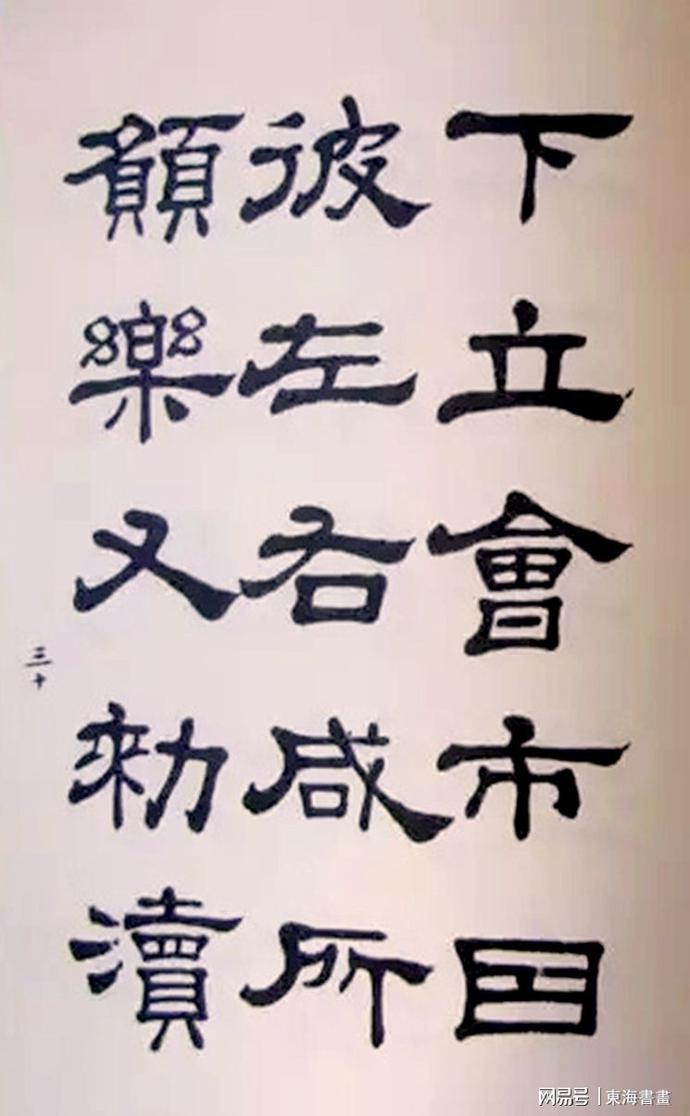 下立會市因
彼左右咸所
願樂又勑瀆
三十
网易号 | 東海書畫